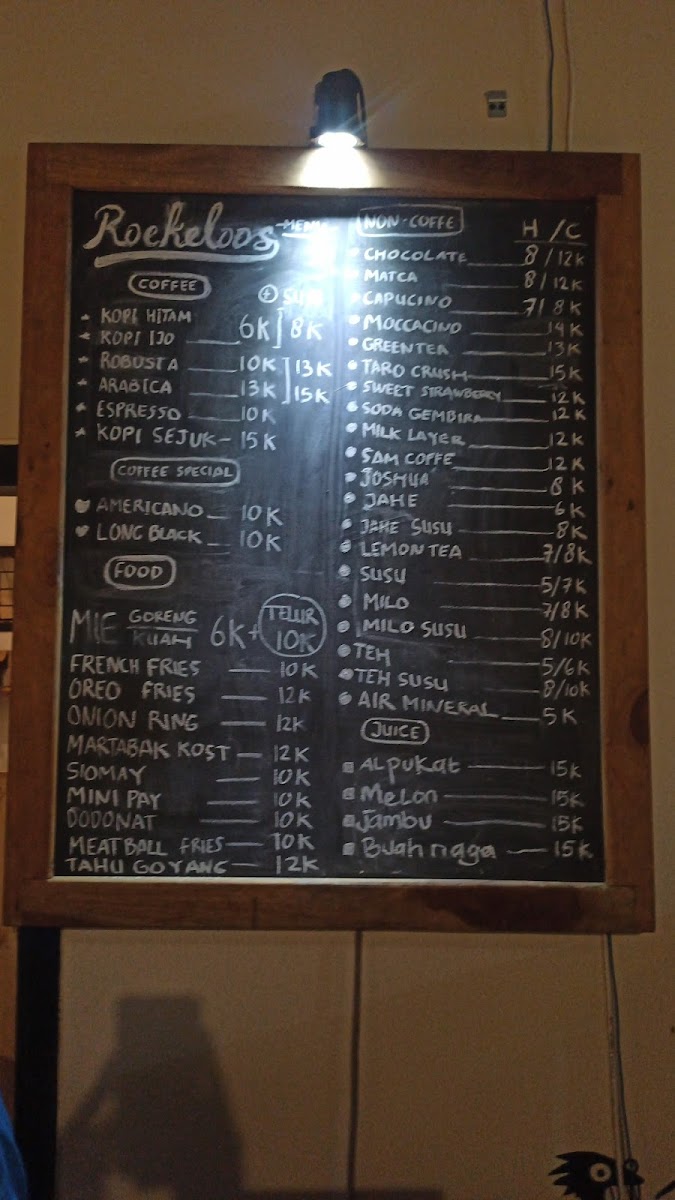 Roekeloos MENU
COFFEE
+ SUSU
KOPI HITAM
KOPI IJO 6K 8K
ROBUSTA 10K 13K
ARABICA 13K 15K
ESPRESSO 10K
KOPI SEJUK 15K
COFFEE SPECIAL
AMERICANO 10K
LONG BLACK 10K
FOOD
MIE GORENG KUAH 6K + TELUR 10K
FRENCH FRIES 10K
OREO FRIES 12K
ONION RING 12K
MARTABAK KOST 12K
SIOMAY 10K
MINI PAY 10K
DODONAT 10K
MEATBALL FRIES 10K
TAHU GOYANG 12K
NON-COFFE H/C
CHOCOLATE 8/12K
MATCA 8/12K
CAPUCINO 7/8K
MOCCACINO 14K
GREENTEA 13K
TARO CRUSH 15K
SWEET STRAWBERRY 12K
SODA GEMBIRA 12K
MILK LAYER 12K
SAM COFFE 12K
JOSHUA 8K
JAHE 6K
JAHE SUSU 8K
LEMON TEA 7/8K
SUSU 5/7K
MILO 7/8K
MILO SUSU 8/10K
TEH 5/6K
TEH SUSU 8/10K
AIR MINERAL 5K
JUICE
ALpukat 15K
Melon 15K
Jambu 15K
Buah naga 15K